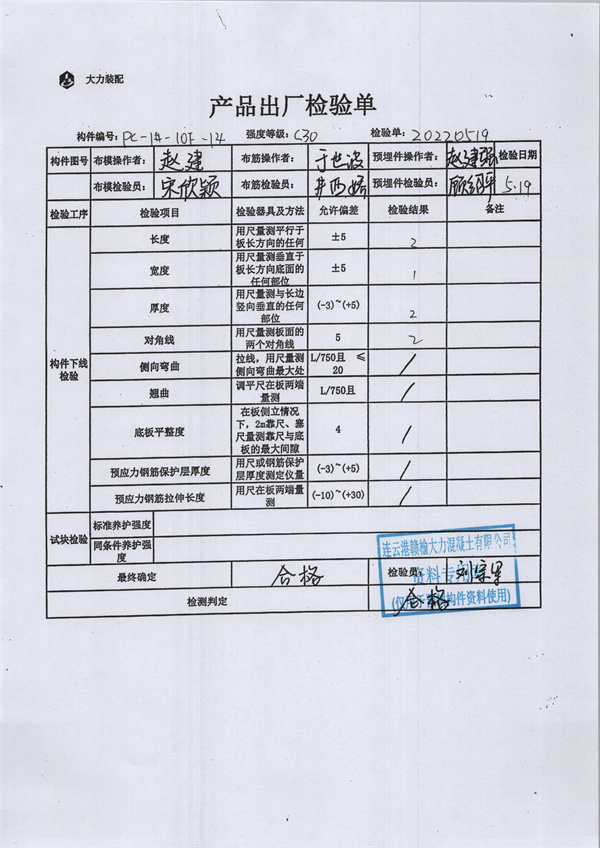 大力装配
产品出厂检验单
构件编号: PC-1#-10F-14 强度等级: C30 检验单: 20220519
构件图号 布模操作者: 赵建 布筋操作者: 于世波 预埋件操作者: 赵建强 检验日期
布模检验员: 宋欣颖 布筋检验员: 预埋件检验员: 5.19
检验工序 检验项目 检验器具及方法 允许偏差 检验结果 备注
构件下线检验
长度 用尺量测平行于板长方向的任何 ±5 2
宽度 用尺量测垂直于板长方向底面的任何部位 ±5 1
厚度 用尺量测与长边竖向垂直的任何部位 (-3)~(+5) 2
对角线 用尺量测板面的两个对角线 5 2
侧向弯曲 拉线，用尺量测侧向弯曲最大处 L/750且 ≤20 /
翘曲 调平尺在板两端量测 L/750且 /
底板平整度 在板侧立情况下，2m靠尺、塞尺量测靠尺与底板的最大间隙 4 /
预应力钢筋保护层厚度 用尺或钢筋保护层厚度测定仪量 (-3)~(+5) /
预应力钢筋拉伸长度 用尺在板两端量测 (-10)~(+30) /
试块检验 标准养护强度
同条件养护强度
连云港赣榆大力混凝土有限公司
最终确定 合格 检验员:
资料专用
检测判定 合格
构件资料使用)